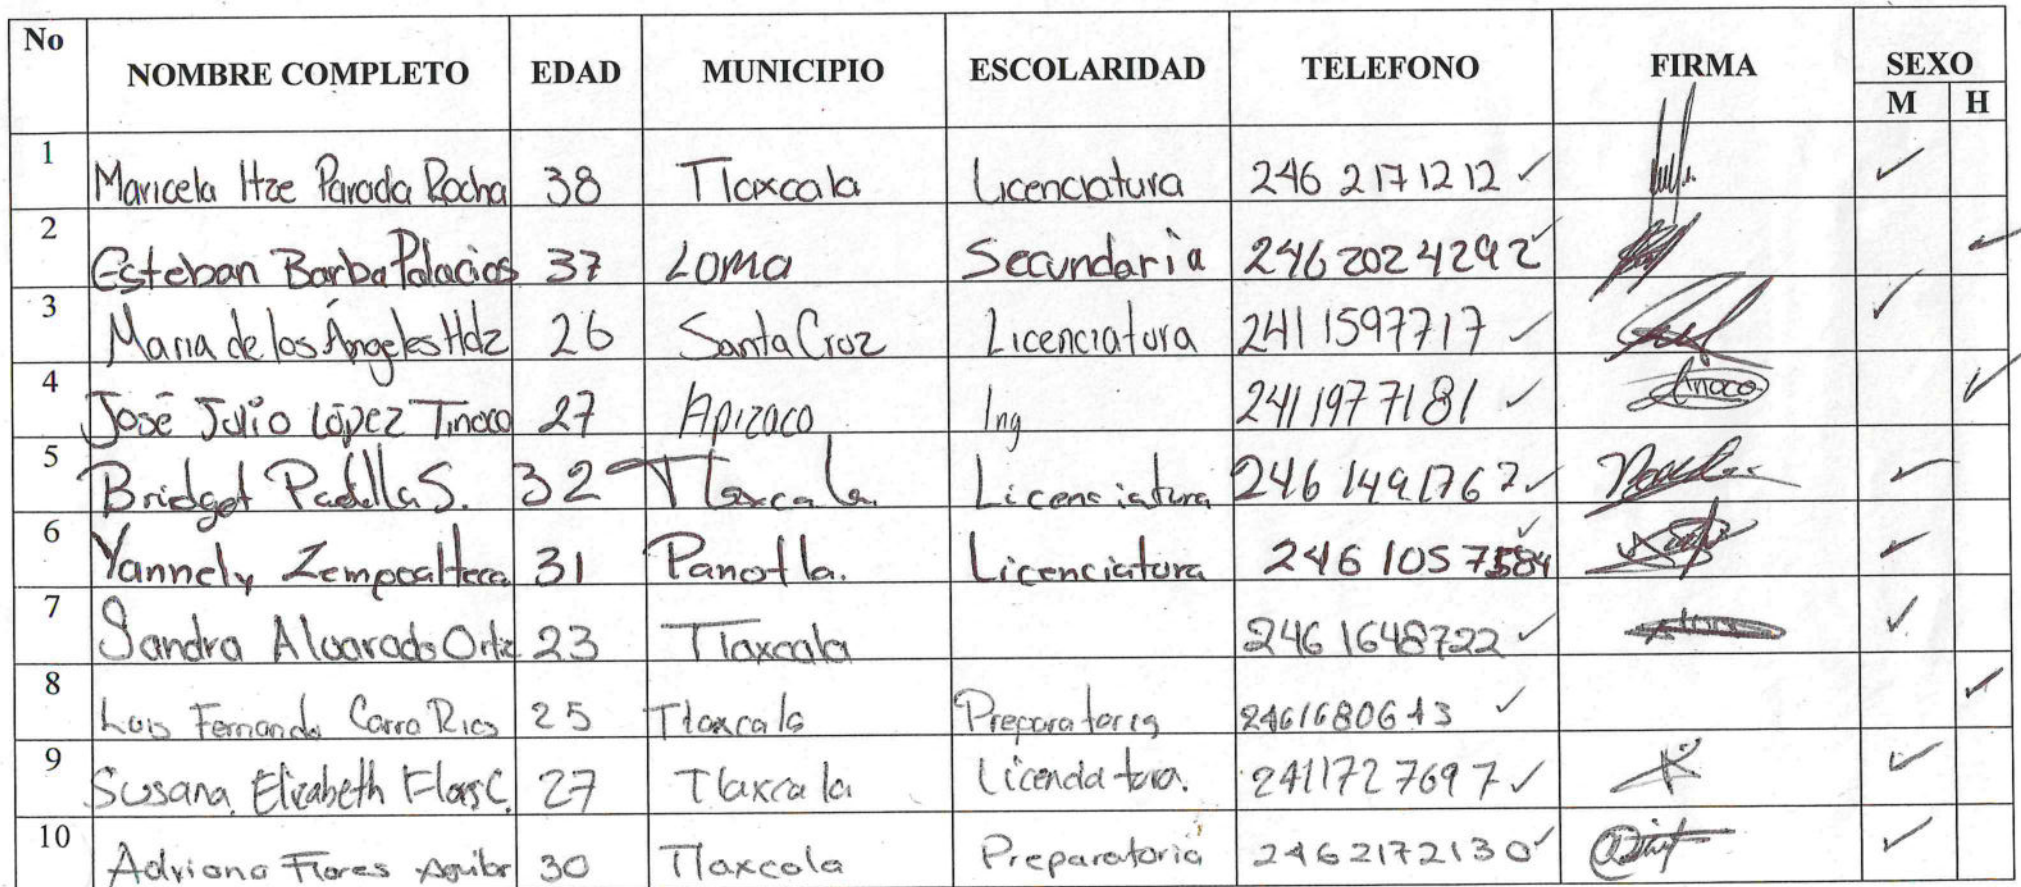 No NOMBRE COMPLETO EDAD MUNICIPIO ESCOLARIDAD TELEFONO FIRMA SEXO
M H
1 Maricela Itze Parada Rocha 38 Tlaxcala Licenciatura 246 2171212 ✓ ✓
2 Esteban Barba Palacios 37 Loma Secundaria 246 202 4292 ✓ ✓
3 Maria de los Ángeles Hdz 26 Santa Cruz Licenciatura 241 1597717 ✓ ✓
4 José Julio López Tinoco 27 Apizaco Ing 241 197 7181 ✓ Tinoco ✓
5 Bridget Padilla S. 32 Tlaxcala Licenciatura 246 1491767 ✓ ✓
6 Yannely Zempoalteca 31 Panotla. Licenciatura 246 1057584 ✓ ✓
7 Sandra Alvarado Ortiz 23 Tlaxcala 246 1648722 ✓ ✓
8 Luis Fernando Carro Rios 25 Tlaxcala Preparatoria 2461680643 ✓ ✓
9 Susana Elizabeth Flores C. 27 Tlaxcala Licenciatura. 2411727697 ✓ ✓
10 Adriana Flores Aguilar 30 Tlaxcala Preparatoria 2462172130 ✓ ✓